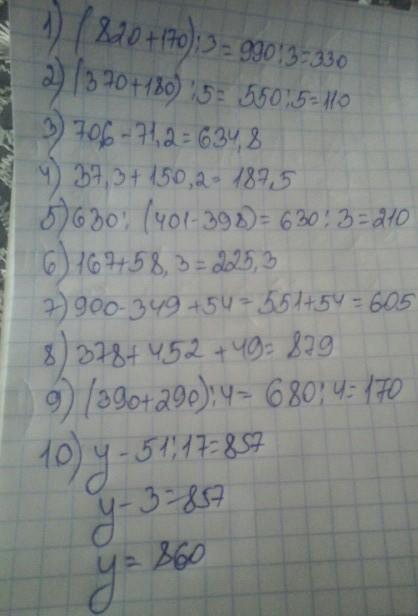 1) (820+170):3=990:3=330
2) (370+180):5=550:5=110
3) 706-71,2=634,8
4) 37,3+150,2=187,5
5) 630:(401-398)=630:3=210
6) 167+58,3=225,3
7) 900-349+54=551+54=605
8) 378+452+49=879
9) (390+290):4=680:4=170
10) y-51:17=857
y-3=857
y=860